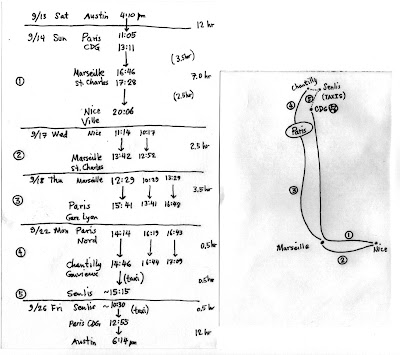 9/13 Sat Austin 4:10 pm
12 hr
9/14 Sun Paris 11:05
CDG 13:11
(3.5hr)
Marseille 16:46
① St. Charles 17:28 7.0 hr
(2.5hr)
Nice 20:06
Ville
9/17 Wed Nice 11:14 10:17
② 2.5 hr
Marseille 13:42 12:52
St. Charles
9/18 Thu Marseille 12:29 10:29 13:29
③ 3.5hr
Paris 15:41 13:41 16:49
Gare Lyon
9/22 Mon Paris 14:14 16:19 16:43
Nord
④ 0.5hr
Chantilly 14:46 16:44 17:09
Gouvieux
(taxi) 0.5hr
⑤ Senlis ~15:15
9/26 Fri Senlis ~10:30 0.5 hr
(taxi)
Paris CDG 12:55
12 hr
Austin 6:14 pm
Chantilly
Senlis
(TAXIS)
④ ⑤
CDG
Paris
③
Marseille ① Nice
②